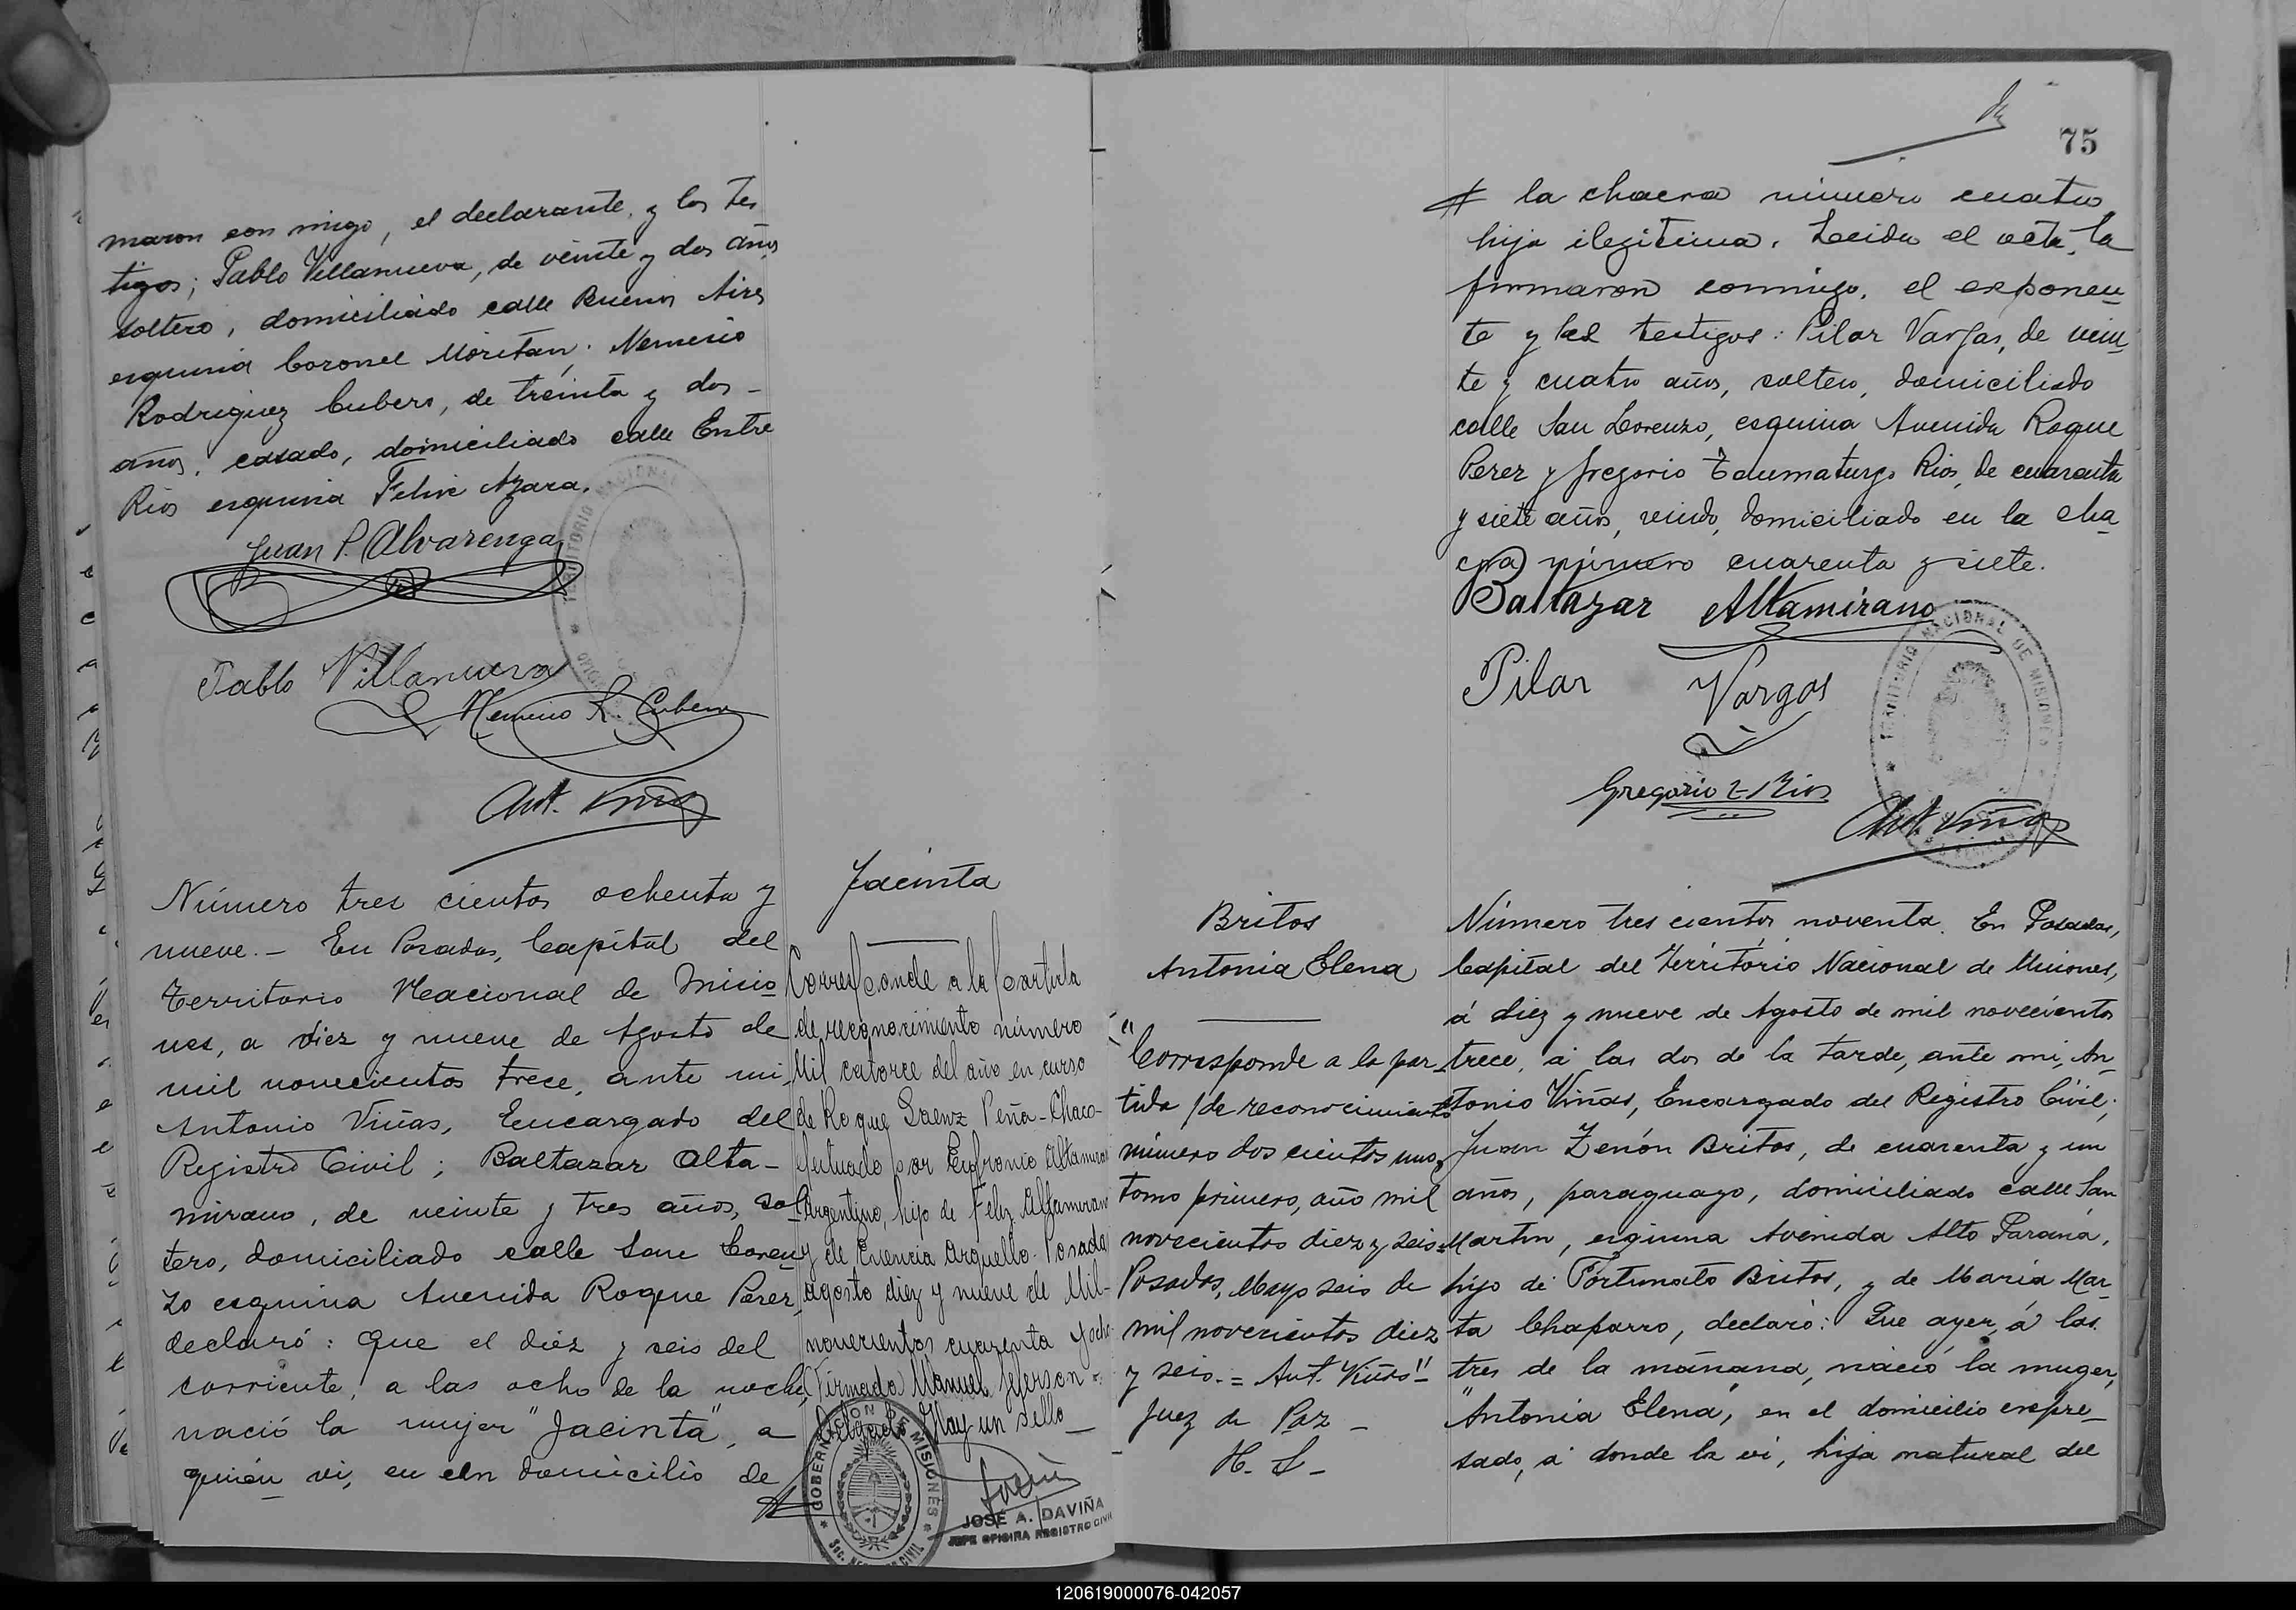 maron con migo, el declarante, y los tes
tigos; Pablo Villanueva, de veinte y dos años
soltero, domiciliado calle Buenos Aires
esquina Coronel Moritán, Nemesio
Rodriguez Cubero, de treinta y dos -
años, casado, domiciliado calle Entre
Rios esquina Felix Azara.
Juan P. Alvarenga
Pablo Villanueva
Nemesio R. Cubero
Ant. Viñas
Número tres cientos ochenta y
nueve. - En Posadas, Capital del
Territorio Nacional de Misio
nes, a diez y nueve de Agosto de
mil novecientos trece, ante mi
Antonio Viñas, Encargado del
Registro Civil; Baltazar Alta-
mirano, de veinte y tres años, sol
tero, domiciliado calle San Loren
zo esquina Avenida Roque Perez,
declaró: Que el diez y seis del
corriente, a las ocho de la noche,
nació la mujer "Jacinta", a
quién vi, en el domicilio de
Jacinta
Corresponde a la partida
de reconocimiento número
Mil catorce del año en curso
de Roque Saenz Peña - Chaco -
efectuado por Eufronio Altamirano
Argentino, hijo de Feliz Altamirano
y de Arguello. Posadas
agosto diez y nueve de Mil-
novecientos cuarenta y ocho
(Firmado) Manuel Jeferson
Delgado Hay un sello
GOBERNACION DE MISIONES
JOSÉ A. DAVIÑA
JEFE OFICINA REGISTRO CIVIL
75
# la chacra número cuatro,
hija ilegitima. Leida el acta, la
firmaron conmigo, el exponen
te y los testigos: Pilar Vargas, de vein
te y cuatro años, soltero, domiciliado
calle San Lorenzo, esquina Avenida Roque
Perez y Gregorio Taumaturgo Rios, de cuarenta
y siete años, viudo, domiciliado en la cha
cra número cuarenta y siete.
Baltazar Altamirano
Pilar Vargas
Gregorio T. Rios
TERRITORIO NACIONAL DE MISIONES
Ant. Viñas
Britos
Antonia Elena
"Corresponde a la par
tida de reconocimiento
número dos cientos uno,
tomo primero, año mil
novecientos diez y seis =
Posadas, Mayo seis de
mil novecientos diez
y seis. = Ant. Viñas"
Juez de Paz -
H. S -
Número tres cientos noventa. En Posadas,
Capital del Território Nacional de Misiones,
á diez y nueve de Agosto de mil novecientos
trece, á las dos de la tarde, ante mi, An
tonio Viñas, Encargado del Registro Civil;
Juan Zenón Britos, de cuarenta y un
años, paraguayo, domiciliado calle San
Martin, esquina Avenida Alto Paraná,
hijo de Fortunato Britos, y de Maria Mar
ta Chaparro, declaró: Que ayer, á las
tres de la mañana, nació la muger,
"Antonia Elena", en el domicilio expre-
sado, á donde la vi, hija natural del
120619000076-042057